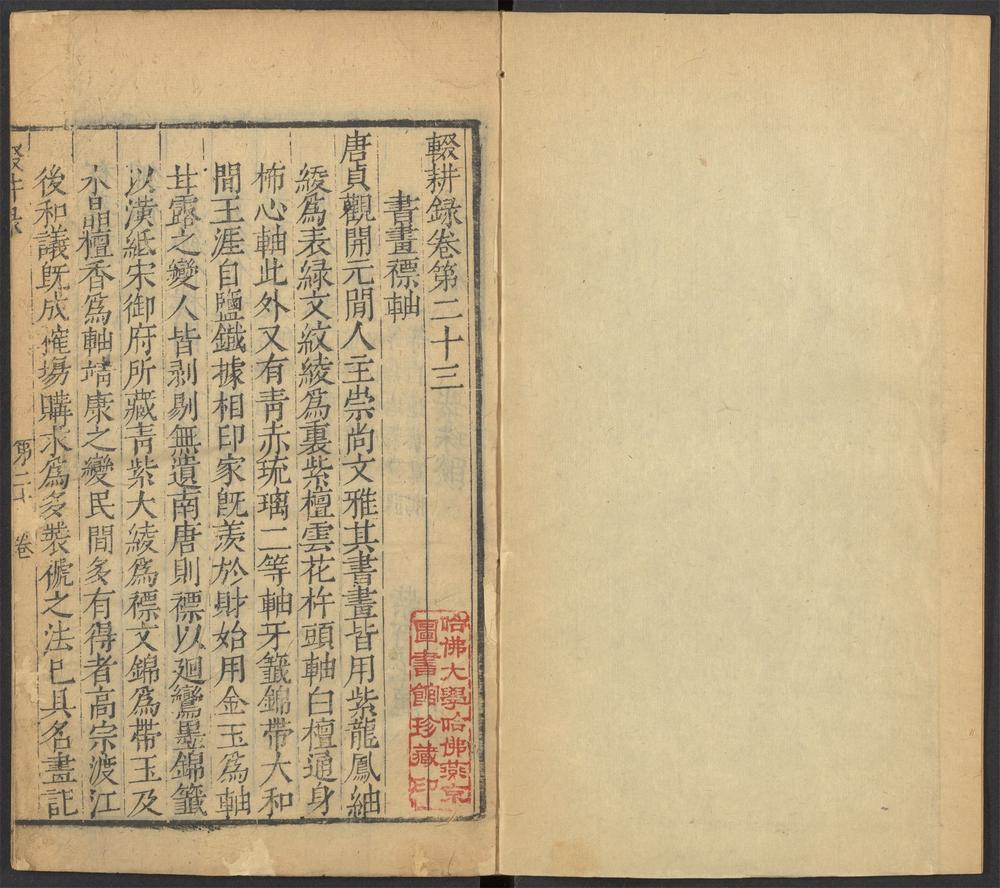 輟耕録卷第二十三
書畫褾軸
唐貞觀開元間人主崇尚文雅其書畫皆用紫龍鳳紬
綾爲表緑文紋綾爲裏紫檀雲花杵頭軸白檀通身
柿心軸此外又有青赤琉璃二等軸牙籤錦帶大和
間王涯自鹽鐵據相印家旣羡於財始用金玉爲軸
甘露之變人皆剥剔無遺南唐則褾以廻鸞墨錦籤
以潢紙宋御府所藏青紫大綾爲褾文錦爲帶玉及
水晶檀香爲軸靖康之變民間多有得者高宗渡江
後和議旣成搉塲購求爲多裝褫之法已具名畫記
卷
哈佛大學哈佛燕京
圖書館珍藏印